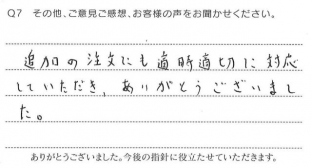 Q7 その他、ご意見ご感想、お客様の声をお聞かせください。
追加の注文にも適時適切に対応
していただき、ありがとうございまし
た。
ありがとうございました。今後の指針に役立たせていただきます。